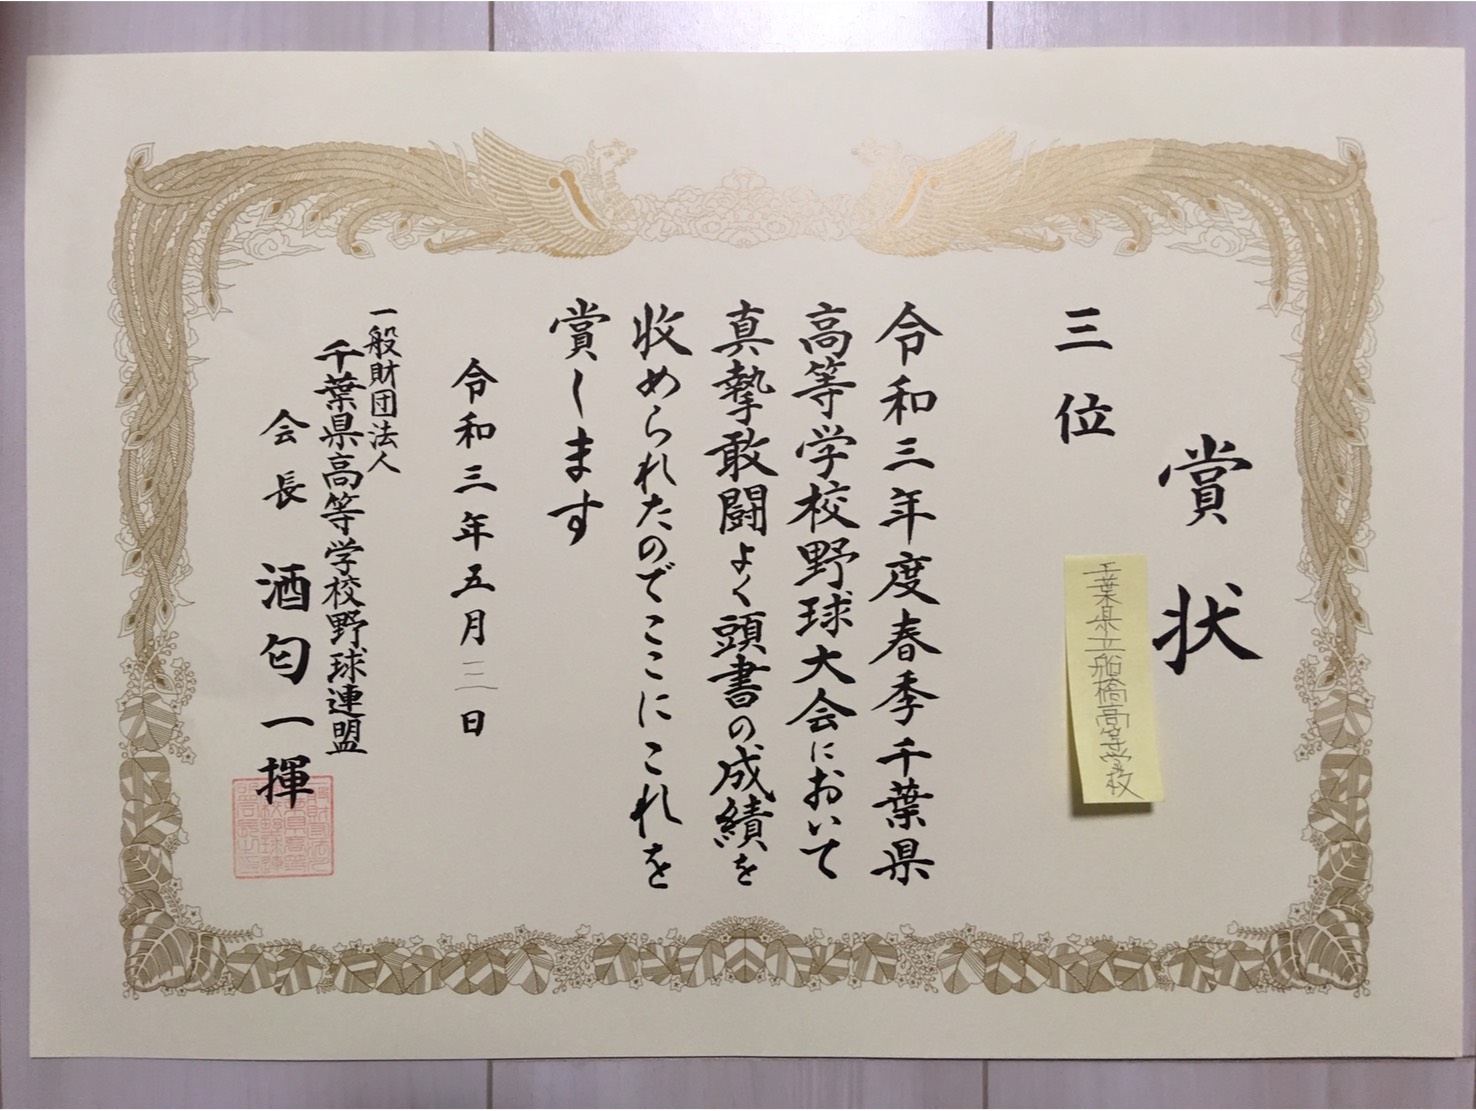 賞状
三位
千葉県立船橋高等学校
令和三年度春季千葉県
高等学校野球大会において
真摯敢闘よく頭書の成績を
収められたのでここにこれを
賞します
令和三年五月三日
一般財団法人
千葉県高等学校野球連盟
会長 酒匂一揮